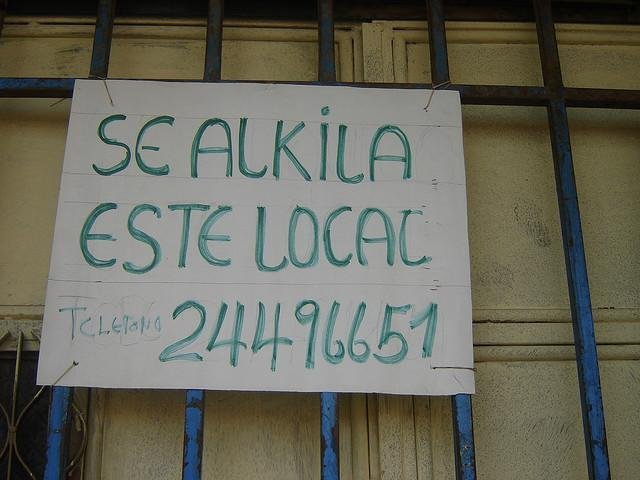 SE ALKİLA
ESTE LOCAL
TELEFONO 24496651